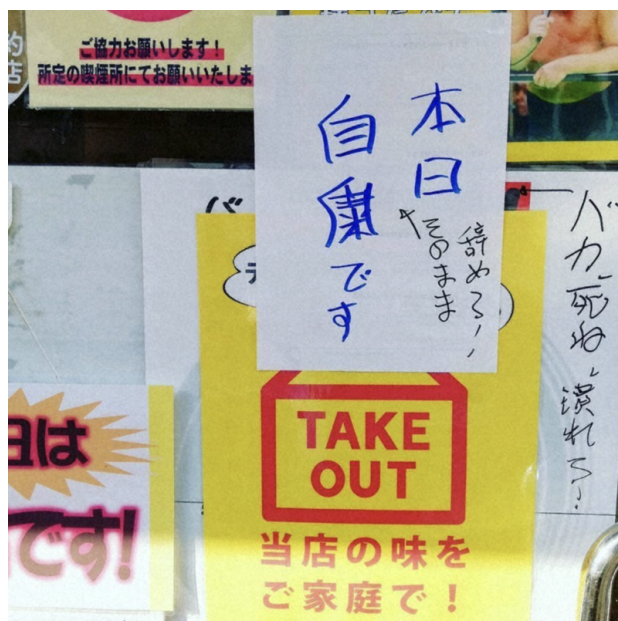 ご協力お願いします！
所定の喫煙所にてお願いいたしま
本日
自粛です
そのまま
辞めろ！
バカ、死ね、潰れろ！
日は
です!
TAKE
OUT
当店の味を
ご家庭で！